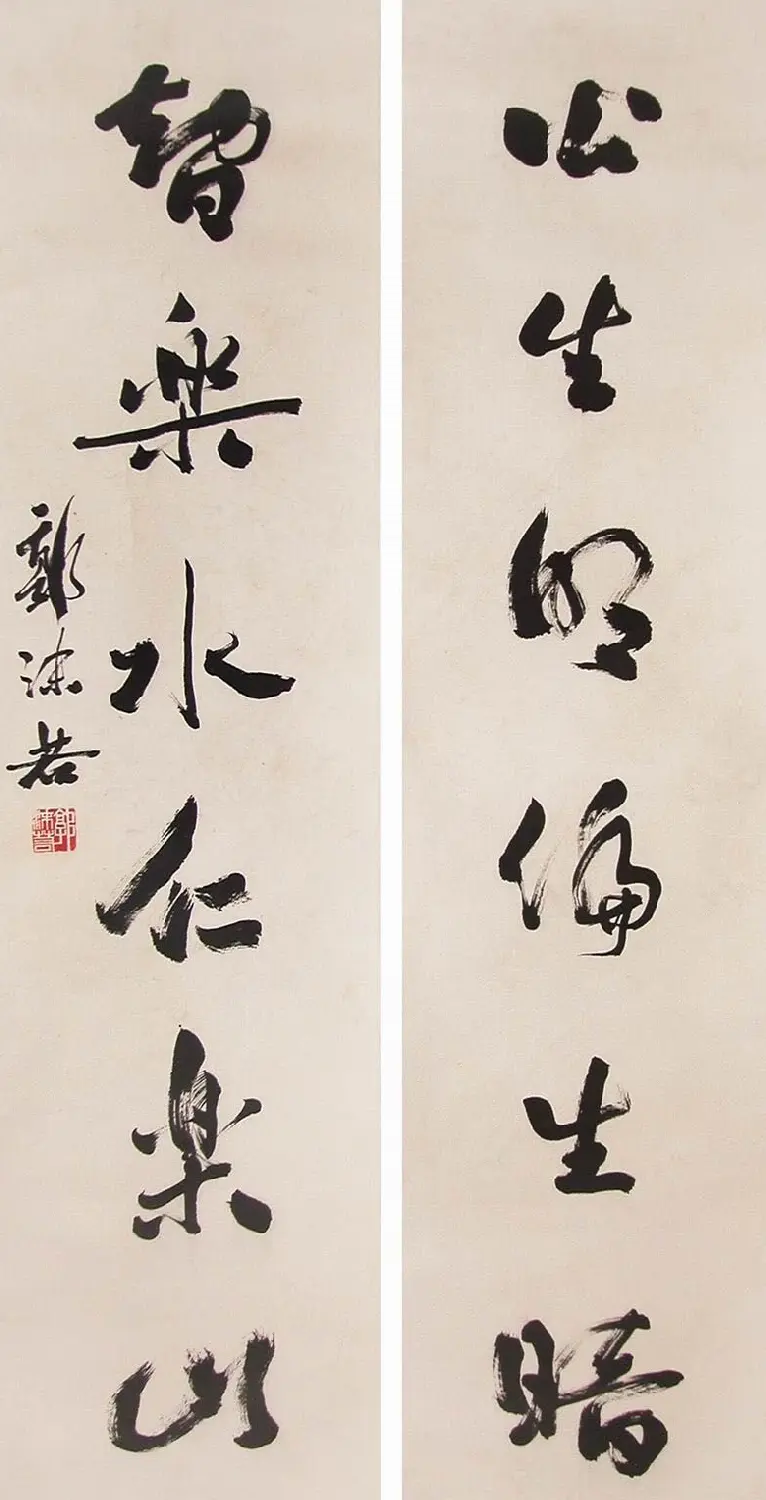 公生明偏生暗
智樂水仁樂山
郭沫若
郭沫若